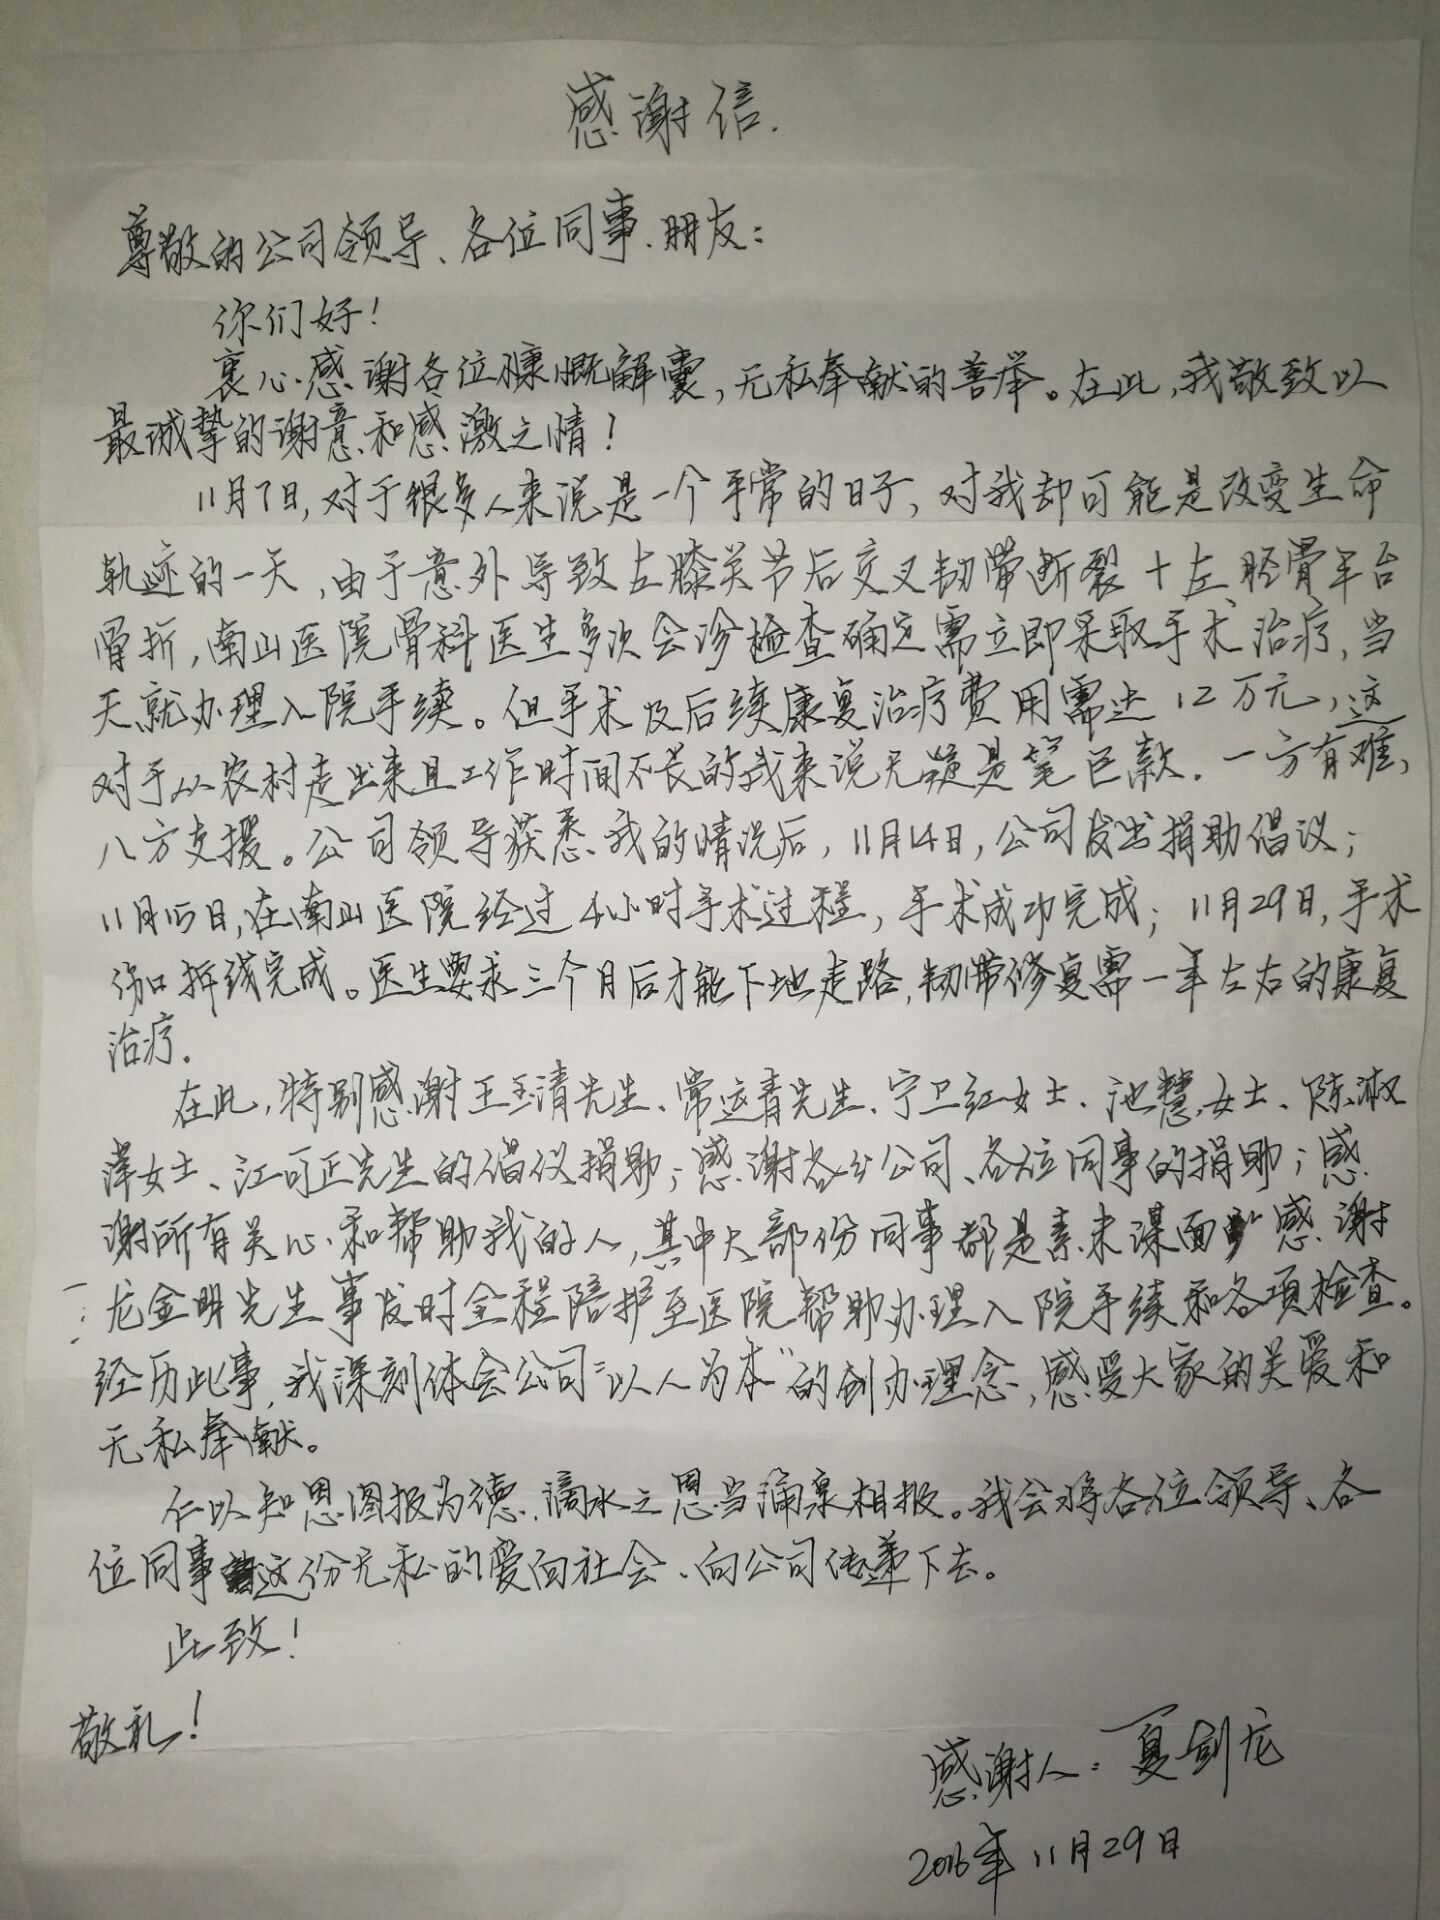 感谢信.
尊敬的公司领导、各位同事、朋友:
你们好!
衷心感谢各位慷慨解囊,无私奉献的善举。在此,我敬致以
最诚挚的谢意和感激之情!
11月7日,对于很多人来说是一个平常的日子,对我却可能是改变生命
轨迹的一天,由于意外导致左膝关节后交叉韧带断裂十左胫骨平台
骨折,南山医院骨科医生多次会诊检查确定需立即采取手术治疗,当
天就办理入院手续。但手术及后续康复治疗费用需达12万元,这
对于从农村走出来且工作时间不长的我来说无疑是笔巨款.一方有难、
八方支援。公司领导获悉我的情况后,11月14日,公司发出捐助倡议;
11月15日,在南山医院经过4小时手术过程,手术成功完成;11月29日,手术
伤口拆线完成。医生要求三个月后才能下地走路,韧带修复需一年左右的康复
治疗.
在此,特别感谢王玉清先生、常远青先生、宁卫红女士、池慧女士、陈淑
萍女士、江可正先生的倡仪捐助;感谢各分公司、各位同事的捐助;感
谢所有关心和帮助我的人,其中大部份同事都是素未谋面,感谢
龙金明先生事发时全程陪护至医院帮助办理入院手续和各项检查。
经历此事,我深刻体会公司“以人为本”的创办理念,感受大家的关爱和
无私奉献。
仁以知恩图报为德,滴水之恩当涌泉相报。我会将各位领导、各
位同事这份无私的爱向社会、向公司传递下去。
此致!
敬礼!
感谢人:夏剑龙
2016年11月29日